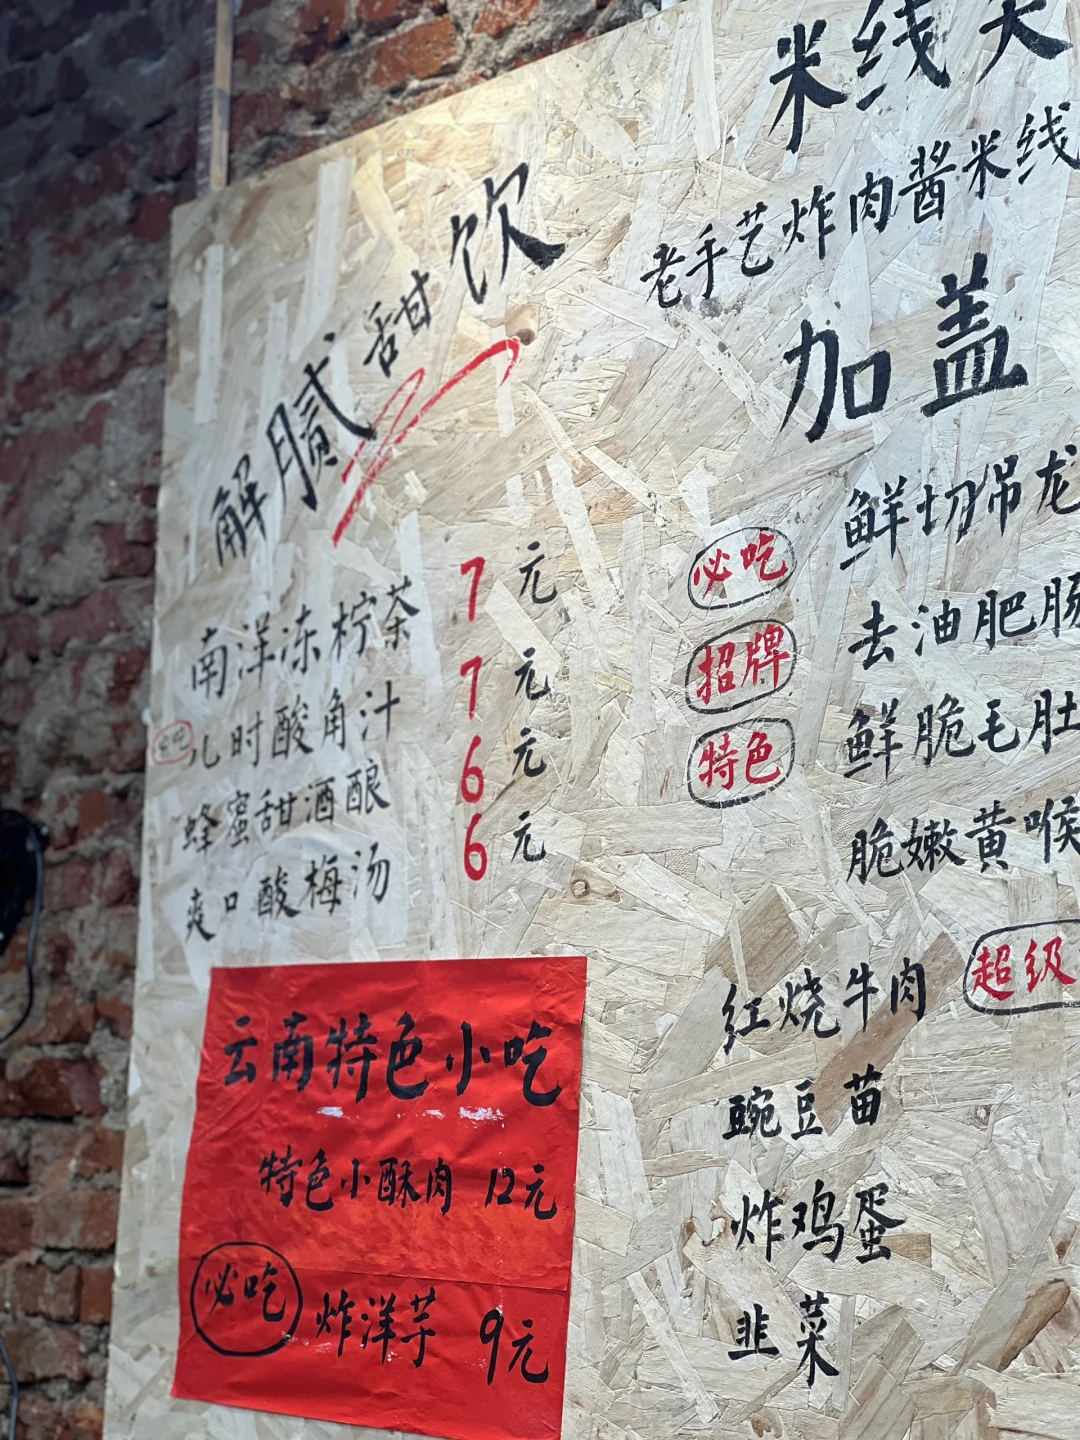 解腻甜饮
南洋冻柠茶 7元
儿时酸角汁 7元
蜂蜜甜酒酿 6元
爽口酸梅汤 6元
云南特色小吃
特色小酥肉 12元
必吃 炸洋芋 9元
米线
老手艺炸肉酱米线
加盖
必吃 鲜切吊龙
招牌 去油肥肠
特色 鲜脆毛肚
脆嫩黄喉
红烧牛肉 超级
豌豆苗
炸鸡蛋
韭菜